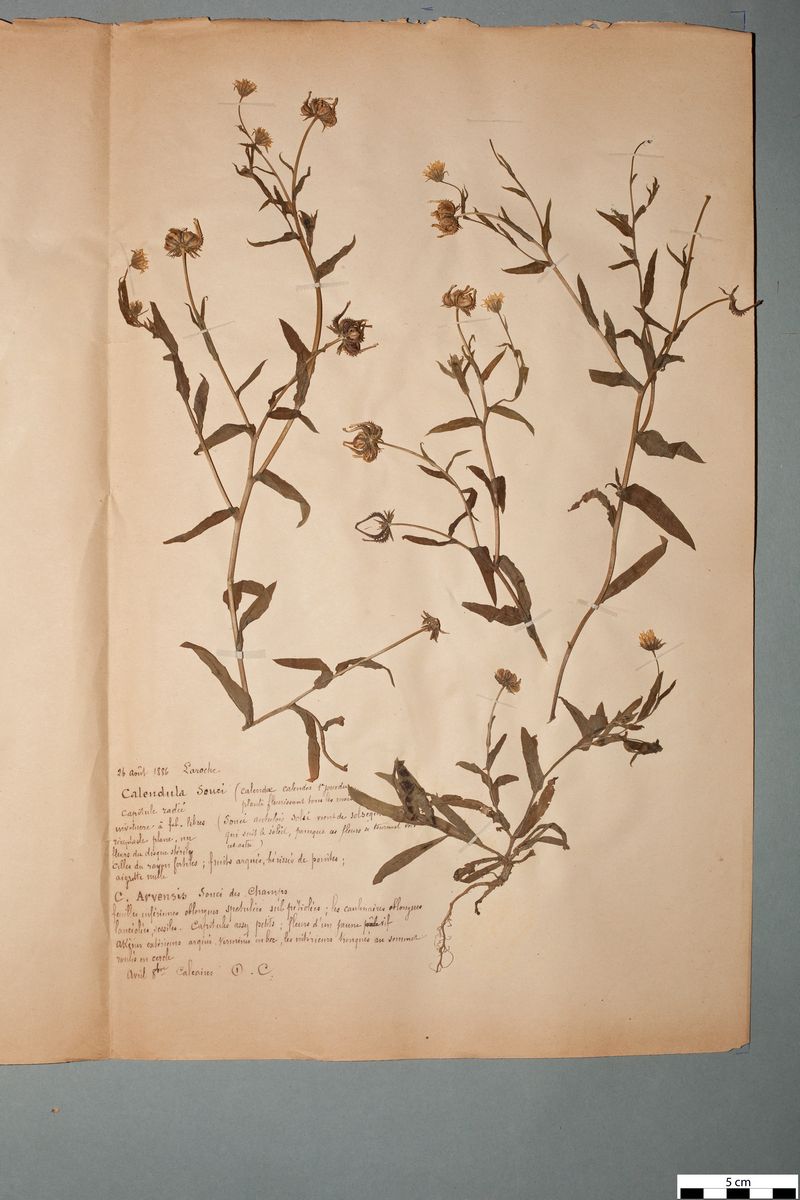 26 août 1886 Laroche
Calendula Souci (calendæ calendes 1er jour du
plante fleurissant tous les mois
Capitule radié
involucre à fol. libres (Souci autrefois solsi vient de solsequi
qui suit le soleil, parceque ses fleurs se tournent vers
cet astre)
réceptacle plane, nu
fleurs du disque stériles
Celles du rayon fertiles ; fruits arqués, hérissés de pointes ;
aigrette nulle
C. Arvensis Souci des Champs
feuilles inférieures oblongues spatulées sub pétiolées ; les caulinaires oblongues
lancéolées, sessiles. Capitules assez petits ; fleurs d'un jaune pâle
Akènes extérieurs arqués, terminés en bec, les intérieurs tronqués au sommet
roulés en cercle
Avril 8bre Calcaires ① . C.
5 cm